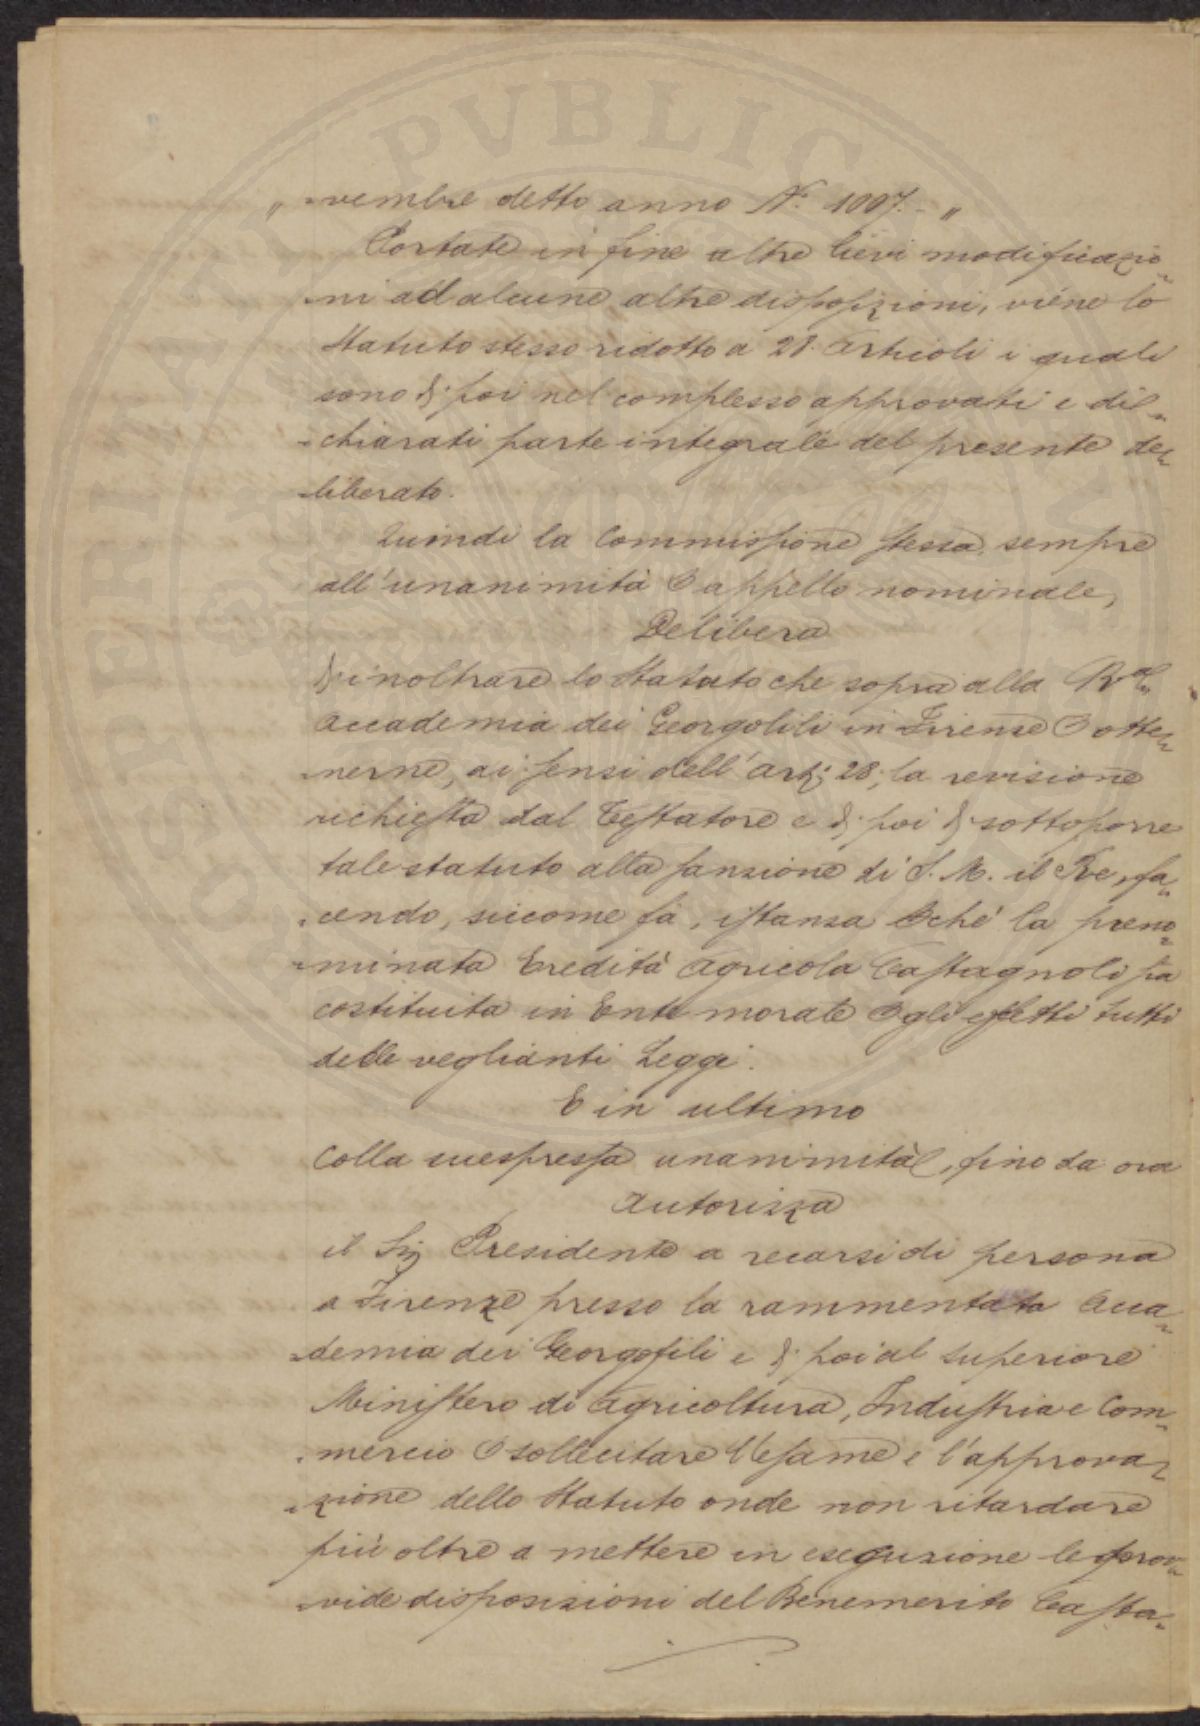 „ -vembre detto anno N.° 1007.- „
Portate in fine altre lievi modificazio-
-ni ad alcune altre disposizioni, viene lo
Statuto stesso ridotto a 28. articoli i quali
sono di poi nel complesso approvati e di-
-chiarati parte integrale del presente de-
-liberato.
Quindi la Commissione stessa, sempre
all'unanimità e appello nominale,
Delibera
di inoltrare lo Statuto che sopra alla R.al
Accademia dei Georgofili in Firenze per otte-
-nerne, ai sensi dell'Art: 28, la revisione
richiesta dal Testatore e di poi di sottoporre
tale statuto alla sanzione di S. M. il Re, fa-
-cendo, siccome fa, istanza perché la preno-
-minata Eredità Agricola Castagnoli sia
costituita in Ente morale per gli effetti tutti
delle veglianti Leggi.
E in ultimo
Colla suespressa unanimità, fino da ora
Autorizza
il Sig Presidente a recarsi di persona
a Firenze presso la rammentata Acca-
-demia dei Georgofili e di poi al Superiore
Ministero di Agricoltura, Industria e Com-
-mercio per sollecitare l'esame e l'approva-
-zione dello Statuto onde non ritardare
più oltre a mettere in esecuzione le prov-
-vide disposizioni del Benemerito Casta-